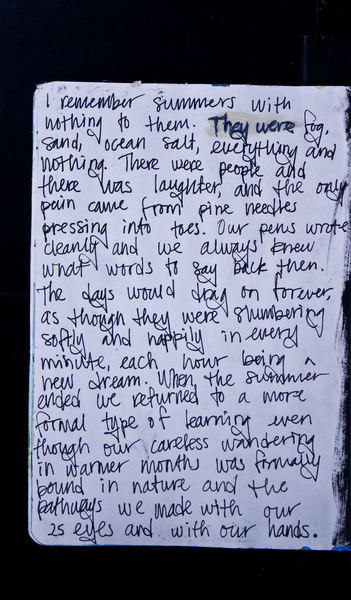 I remember summers with
nothing to them. They were fog,
sand, ocean salt, everything and
nothing. There were people and
there was laughter, and the only
pain came from pine needles
pressing into toes. Our pens wrote
cleanly and we always knew
what words to say back then.
The days would drag on forever,
as though they were slumbering
softly and happily in every
minute, each hour being a
new dream. When the summer
ended we returned to a more
formal type of learning even
though our careless wandering
in warmer months was formally
bound in nature and the
pathways we made with our
25 eyes and with our hands.